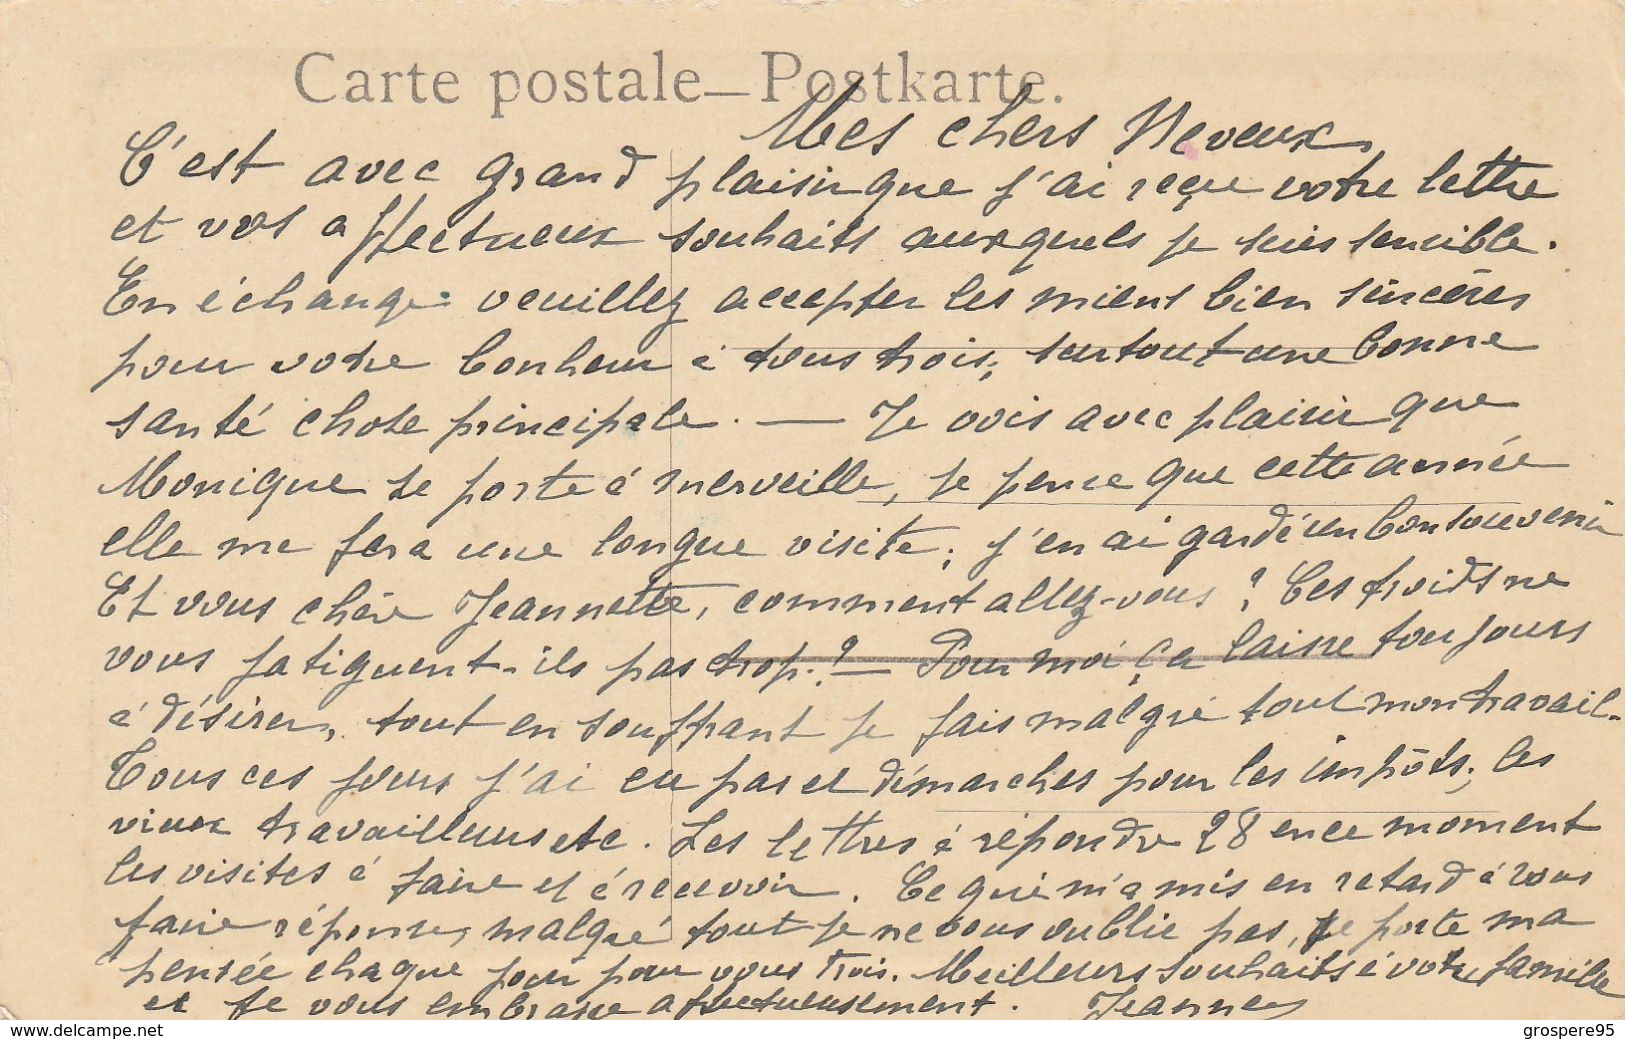 Carte postale — Postkarte.
Mes chers Neveux,
C'est avec grand plaisir que j'ai reçue votre lettre
et vos affectueux souhaits auxquels je suis sensible.
En échange veuillez accepter les miens bien sincères
pour votre bonheur à tous trois, surtout une bonne
santé chose principale. — Je vois avec plaisir que
Monique se porte à merveille, je pense que cette année
elle me fera une longue visite, j'en ai gardé un bon souvenir
Et vous chère Jeannette, comment allez-vous ? Ces froids ne
vous fatiguent-ils pas trop.? — Pour moi ça laisse toujours
à désirer, tout en souffrant je fais malgré tout mon travail.
Tous ces jours j'ai eu pas et démarches pour les impôts, les
vieux travailleurs etc. Les lettres à répondre 28 en ce moment
les visites à faire et à recevoir. Ce qui m'a mis en retard à vous
faire réponse, malgré tout je ne vous oublie pas, je porte ma
pensée chaque jour pour vous trois. Meilleurs souhaits à votre famille
et je vous embrasse affectueusement. Jeanne
delcampe.net
grospere95